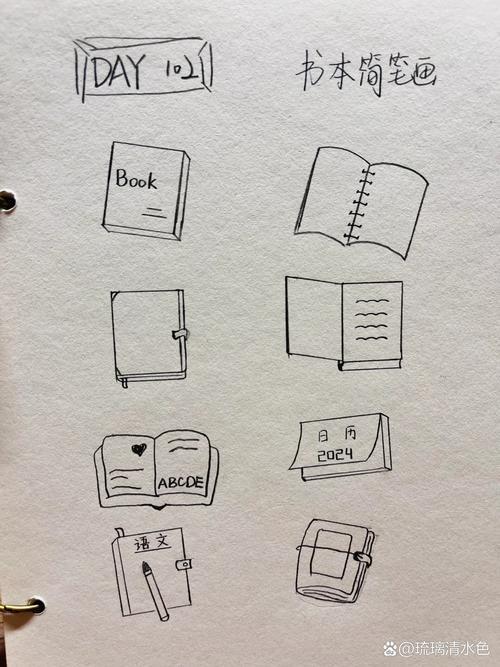 DAY 102
书本简笔画
Book
日历
2024
ABCDE
语文
琉璃清水色